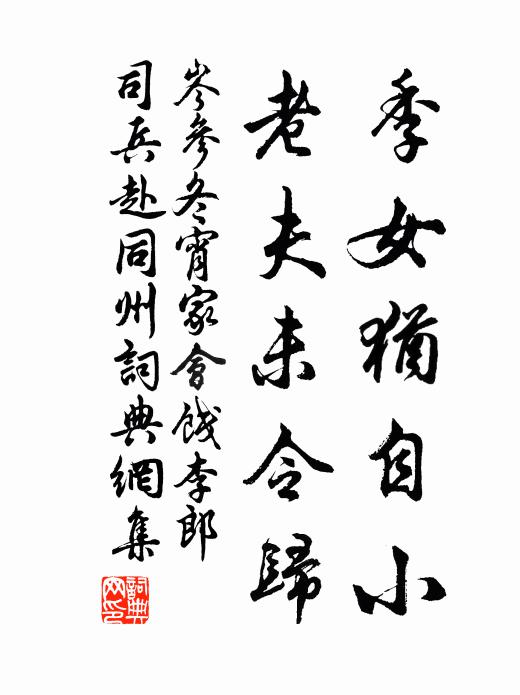 季女猶自小
老夫未令歸
岑參冬宵家會餞李郎
司兵赴同州詞典網集
詞典
网印